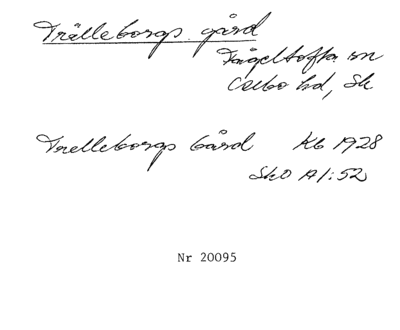 Trälleborgs gård
Fågeltofta sn
Albo hd, Sk
Trelleborgs Gård Kb 1928
SkO A1:52
Nr 20095